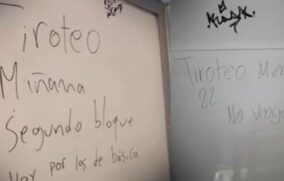 Tiroteo
Miñana
Segundo bloque
Voy por los de básica
Tiroteo
22
No venga